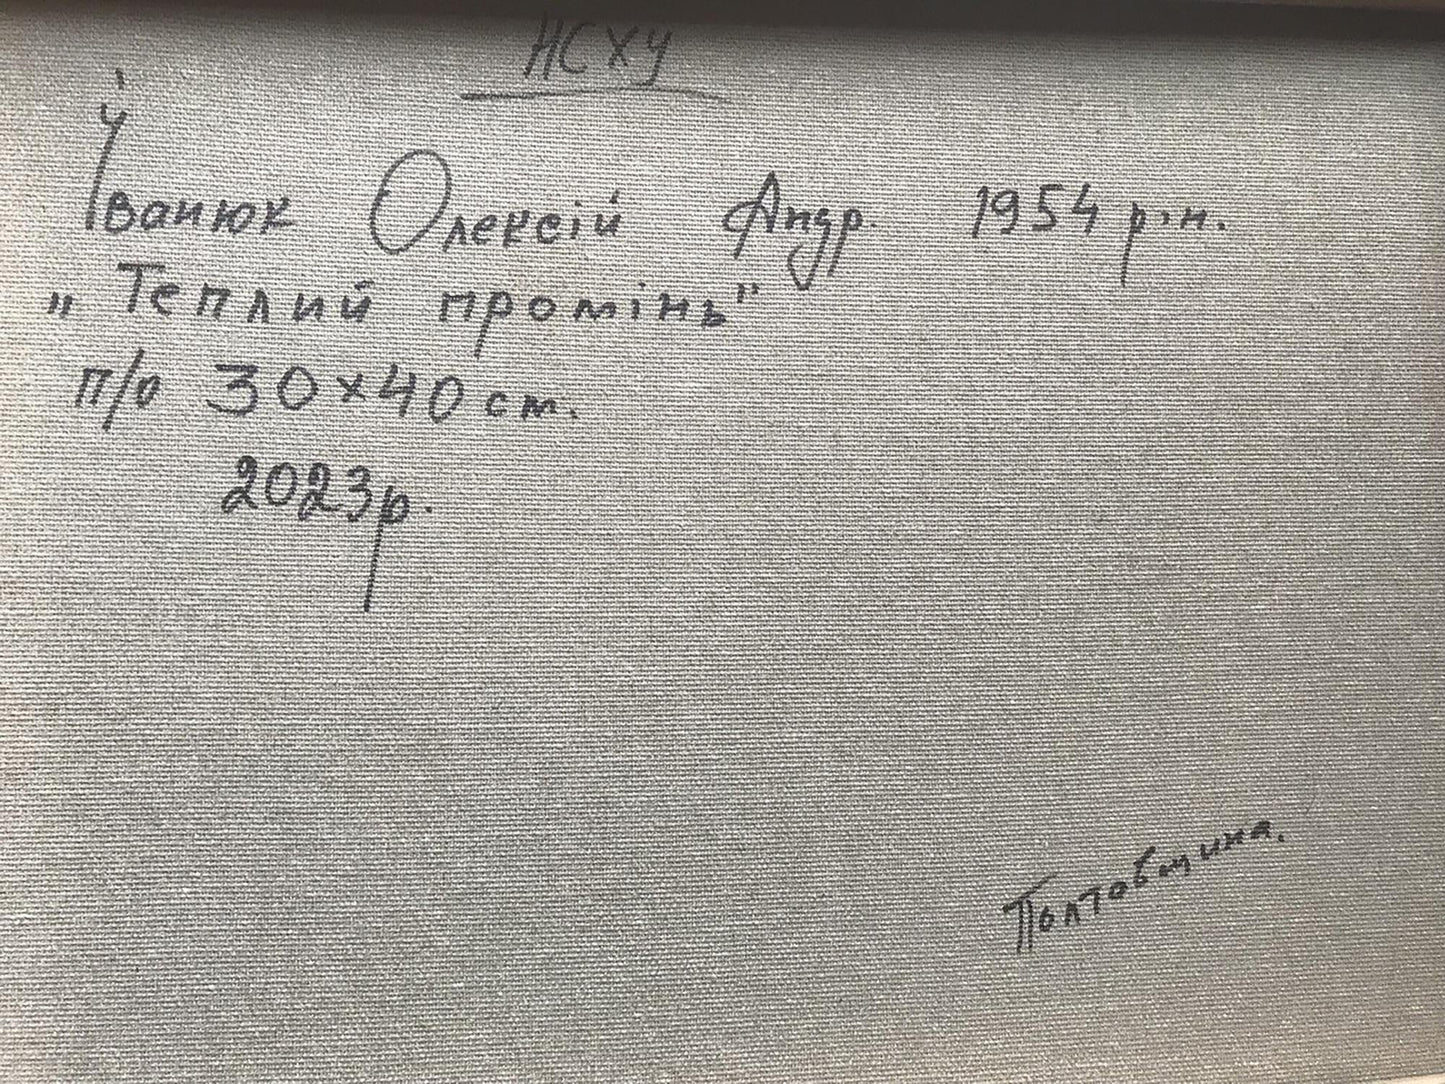 НСХУ
Іванюк Олексій Андр. 1954 р.н.
„Теплий промінь"
п/о 30х40 см.
2023р.
Полтовщина.